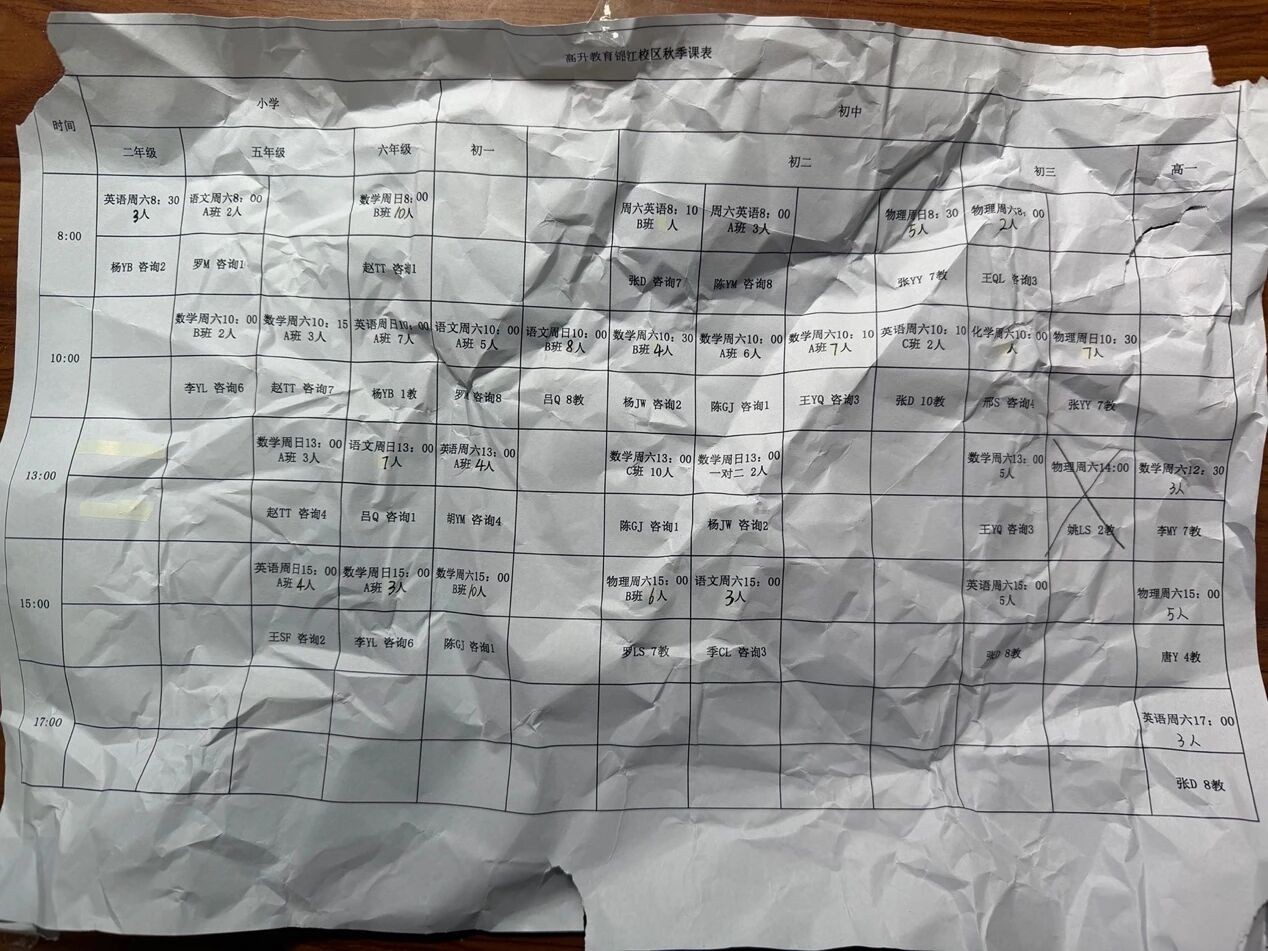 高升教育锦江校区秋季课表
时间 小学 初中
二年级 五年级 六年级 初一 初二 初三 高一
8:00
英语周六8：30 语文周六8：00 数学周日8：00 周六英语8：10 周六英语8：00 物理周日8：30 物理周六8：00
3人 A班 2人 B班 10人 B班 人 A班 3人 5人 2人
杨YB 咨询2 罗M 咨询1 赵TT 咨询1 张D 咨询7 陈YM 咨询8 张YY 7教 王QL 咨询3
10:00
数学周六10：00 数学周六10：15 英语周日10：00 语文周六10：00 语文周日10：00 数学周六10：30 数学周六10：00 数学周六10：10 英语周六10：10 化学周六10：00 物理周日10：30
B班 2人 A班 3人 A班 7人 A班 5人 B班 8人 B班 4人 A班 6人 A班 7人 C班 2人 人 7人
李YL 咨询6 赵TT 咨询7 杨YB 1教 咨询8 吕Q 8教 杨JW 咨询2 陈GJ 咨询1 王YQ 咨询3 张D 10教 邢S 咨询4 张YY 7教
13:00
数学周日13：00 语文周日13：00 英语周六13：00 数学周六13：00 数学周日13：00 数学周六13：00 物理周六14:00 数学周六12：30
A班 3人 7人 A班 4人 C班 10人 一对二 2人 5人 3人
赵TT 咨询4 吕Q 咨询1 胡YM 咨询4 陈GJ 咨询1 杨JW 咨询2 王YQ 咨询3 姚LS 2教 李MY 7教
15:00
英语周日15：00 数学周日15：00 数学周六15：00 物理周六15：00 语文周六15：00 英语周六15：00 物理周六15：00
A班 4人 A班 3人 B班 10人 B班 6人 3人 5人 5人
王SF 咨询2 李YL 咨询6 陈GJ 咨询1 罗LS 7教 季CL 咨询3 张D 8教 唐Y 4教
17:00
英语周六17：00
3人
张D 8教